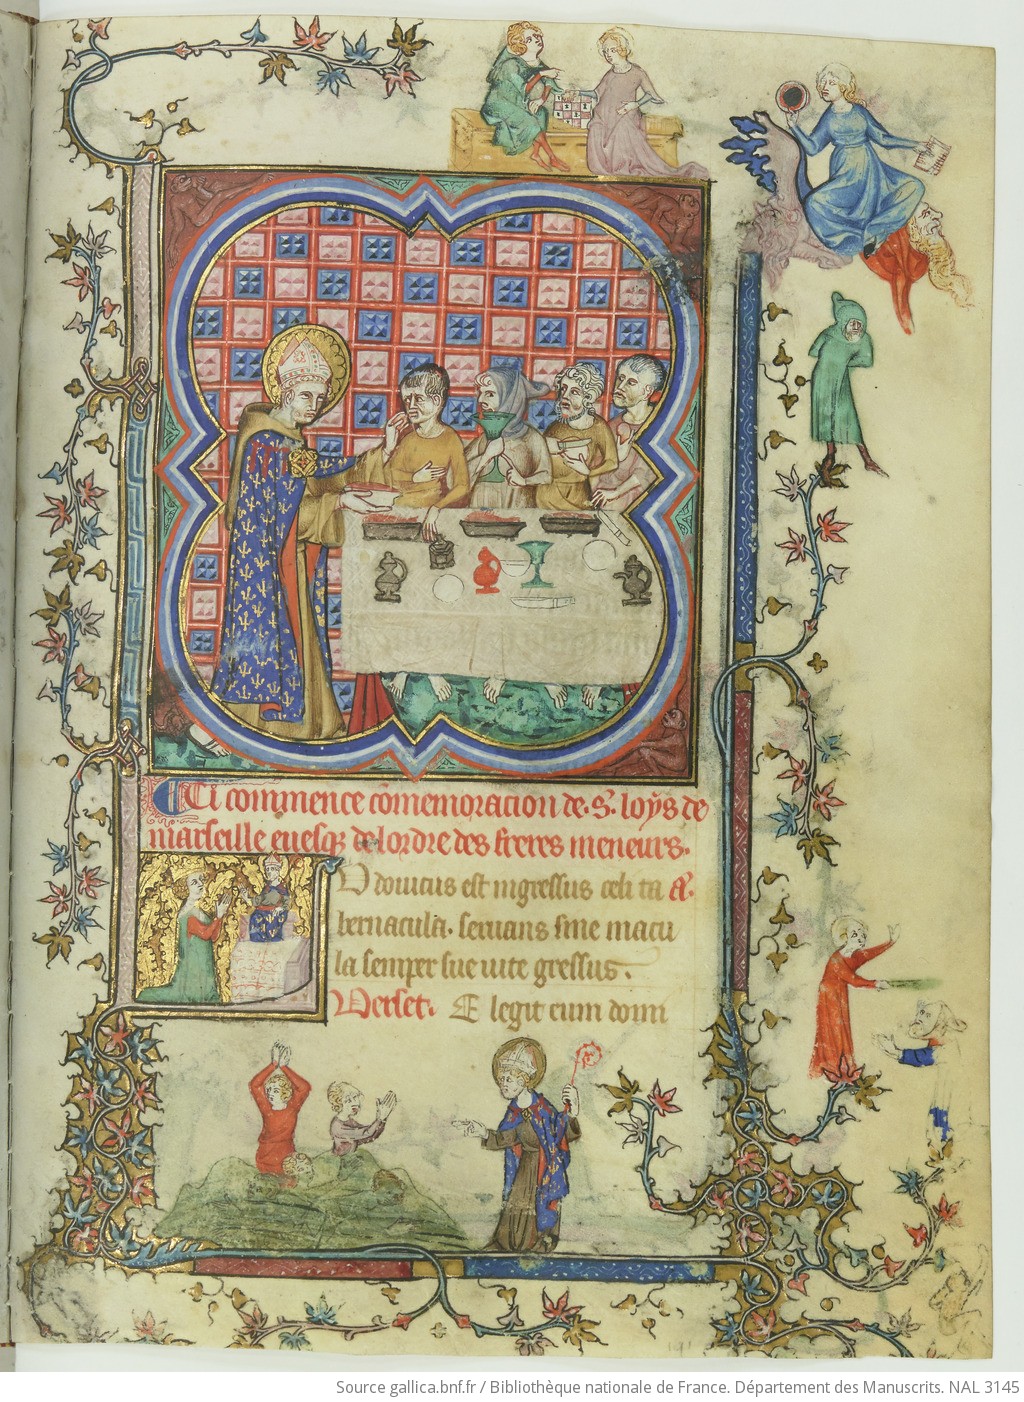 Ci commence cōmemoracion de. s̄. loÿs de
marseille euesq̄ de lordre des freres meneurs.
O douicus est ingressus celi ta A.
bernacula. seruans sine macu
la semper sue uite gressus.
Verset. E legit eum domi
Source gallica.bnf.fr / Bibliothèque nationale de France. Département des Manuscrits. NAL 3145